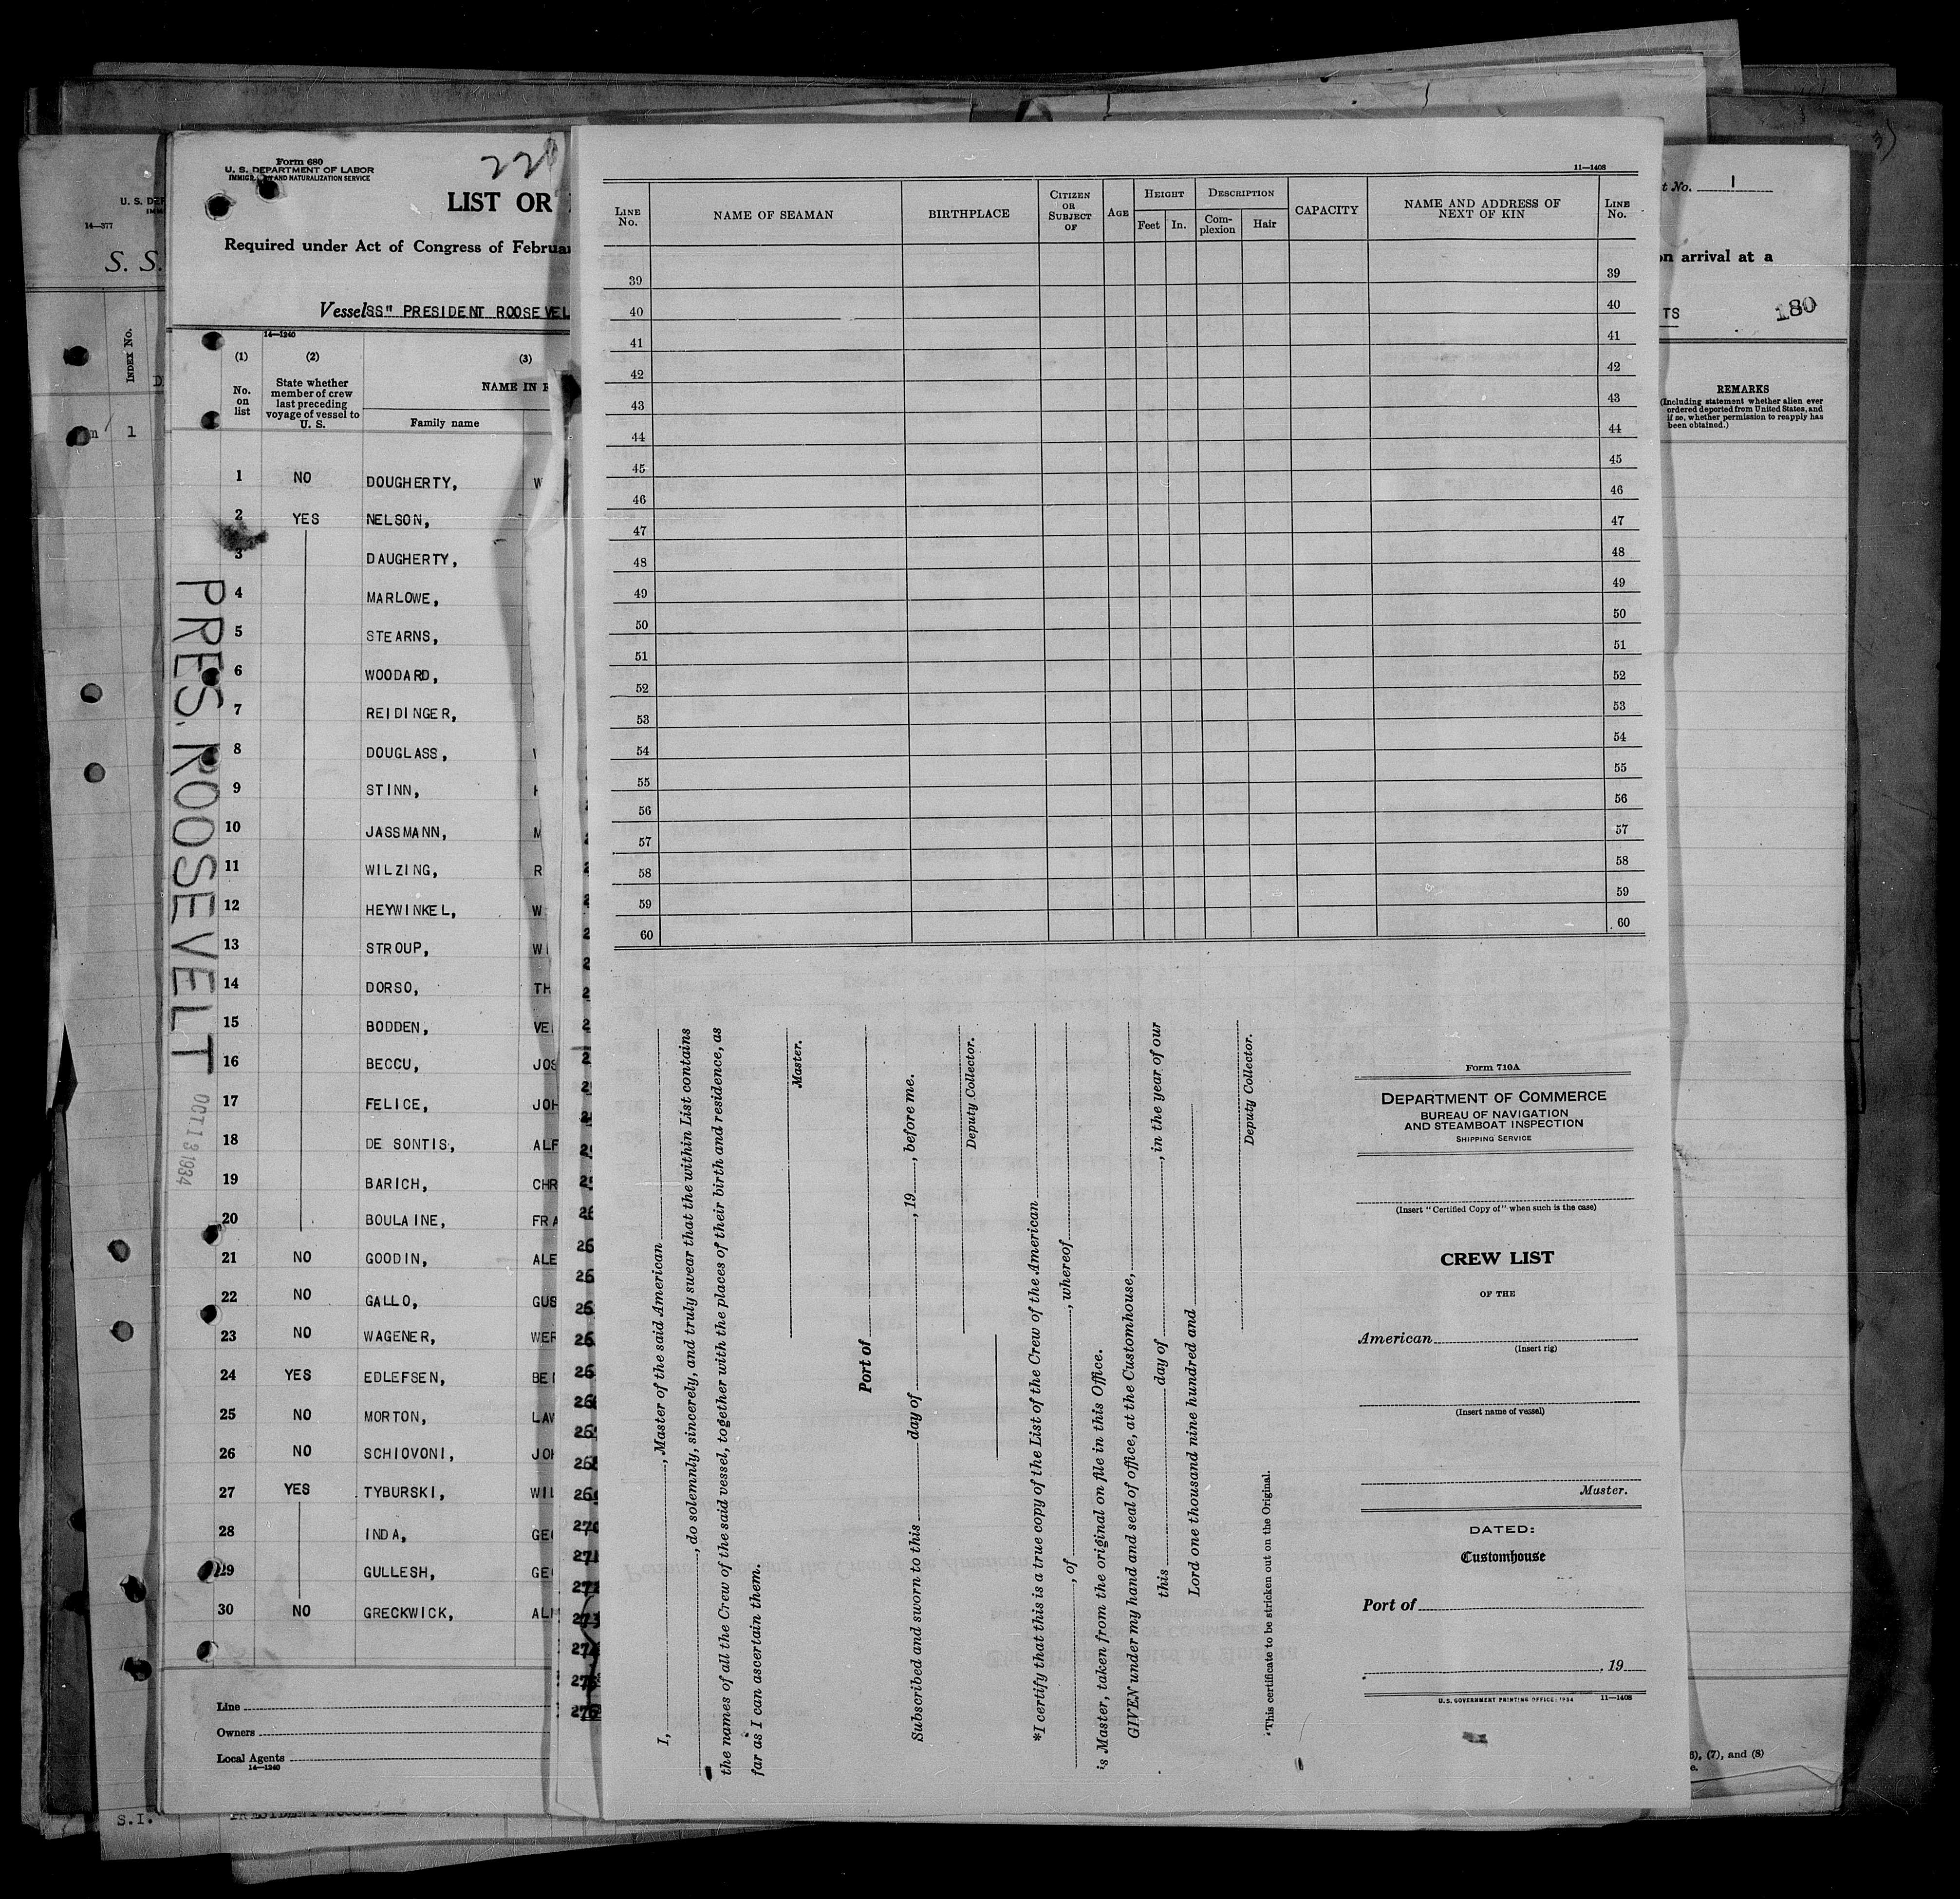 U. S. DEP
14—377
S. S.
INDEX No.
1
S.I.
Form 680
U. S. DEPARTMENT OF LABOR
AND NATURALIZATION SERVICE
LIST OR
Required under Act of Congress of Februar
Vessel SS" PRESIDENT ROOSEVEL
14—1240
(1) (2) (3)
No. on list
State whether member of crew last preceding voyage of vessel to U. S.
NAME IN F
Family name
1 NO DOUGHERTY, W
2 YES NELSON,
3 DAUGHERTY,
4 MARLOWE,
5 STEARNS,
6 WOODARD,
7 REIDINGER,
8 DOUGLASS,
9 STINN,
10 JASSMANN, M
11 WILZING, R
12 HEYWINKEL, W
13 STROUP, WI
14 DORSO, TH
15 BODDEN, VE
16 BECCU, JOS
17 FELICE, JOH
18 DE SONTIS, ALF
19 BARICH, CHR
20 BOULAINE, FRA
21 NO GOODIN, ALE
22 NO GALLO, GUS
23 NO WAGENER, WER
24 YES EDLEFSEN, BE
25 NO MORTON, LAW
26 NO SCHIOVONI, JOH
27 YES TYBURSKI, WIL
28 INDA, GE
29 GULLESH, GE
30 NO GRECKWICK, AL
PRES. ROOSEVELT
OCT 13 1934
Line
Owners
Local Agents
14—1240
11—1408
LINE No.
NAME OF SEAMAN
BIRTHPLACE
CITIZEN OR SUBJECT OF
AGE
HEIGHT
Feet In.
DESCRIPTION
Complexion Hair
CAPACITY
NAME AND ADDRESS OF NEXT OF KIN
LINE No.
39 39
40 40
41 41
42 42
43 43
44 44
45 45
46 46
47 47
48 48
49 49
50 50
51 51
52 52
53 53
54 54
55 55
56 56
57 57
58 58
59 59
60 60
I, , Master of the said American
, do solemnly, sincerely, and truly swear that the within List contains
the names of all the Crew of the said vessel, together with the places of their birth and residence, as
far as I can ascertain them.
Master.
Port of
Subscribed and sworn to this day of , 19 , before me.
Deputy Collector.
*I certify that this is a true copy of the List of the Crew of the American
, of , whereof
is Master, taken from the original on file in this Office.
GIVEN under my hand and seal of office, at the Customhouse,
this day of , in the year of our
Lord one thousand nine hundred and
Deputy Collector.
*This certificate to be stricken out on the Original.
Form 710A
DEPARTMENT OF COMMERCE
BUREAU OF NAVIGATION
AND STEAMBOAT INSPECTION
SHIPPING SERVICE
(Insert "Certified Copy of" when such is the case)
CREW LIST
OF THE
American
(Insert rig)
(Insert name of vessel)
Master.
DATED:
Customhouse
Port of
, 19
U.S. GOVERNMENT PRINTING OFFICE: 1934 11—1408
t No. 1
on arrival at a
TS 180
REMARKS
(Including statement whether alien ever
ordered deported from United States, and
if so, whether permission to reapply has
been obtained.)
6), (7), and (8)